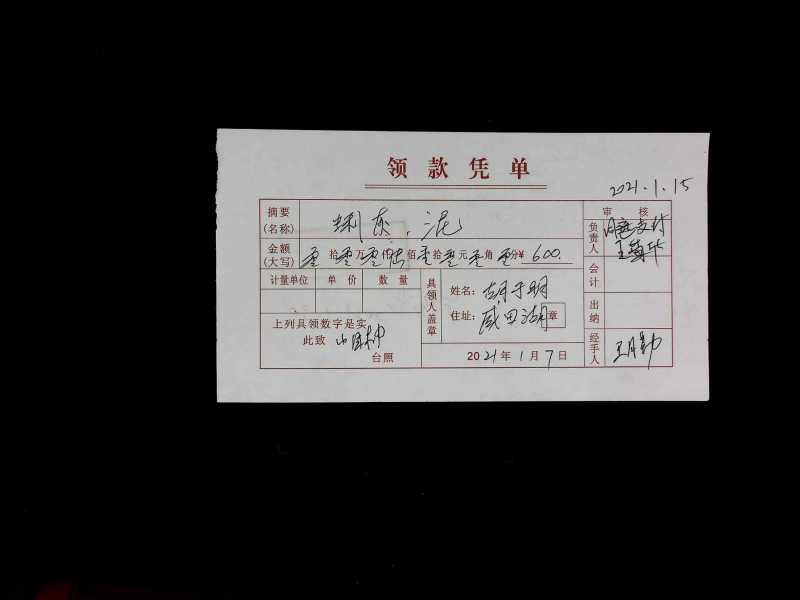 领款凭单
2021.1.15
摘要
(名称)
灰、泥
审核
负责人
同意支付
金额
(大写)
零拾零万零仟陆佰零拾零元零角零分¥600.
计量单位 单价 数量
上列具领数字是实
此致
台照
具领人盖章
姓名:胡于明
住址:咸田湖
章
2021年1月7日
会计
出纳
经手人